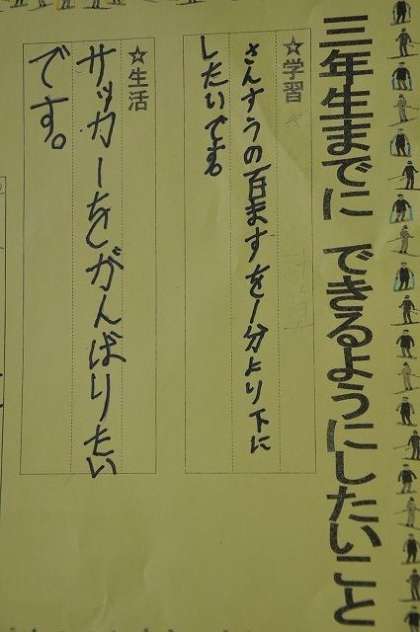 三年生までに できるようにしたいこと
☆学習
さんすうの百ますを1分より下に
したいです。
☆生活
サッカーをがんばりたい
です。